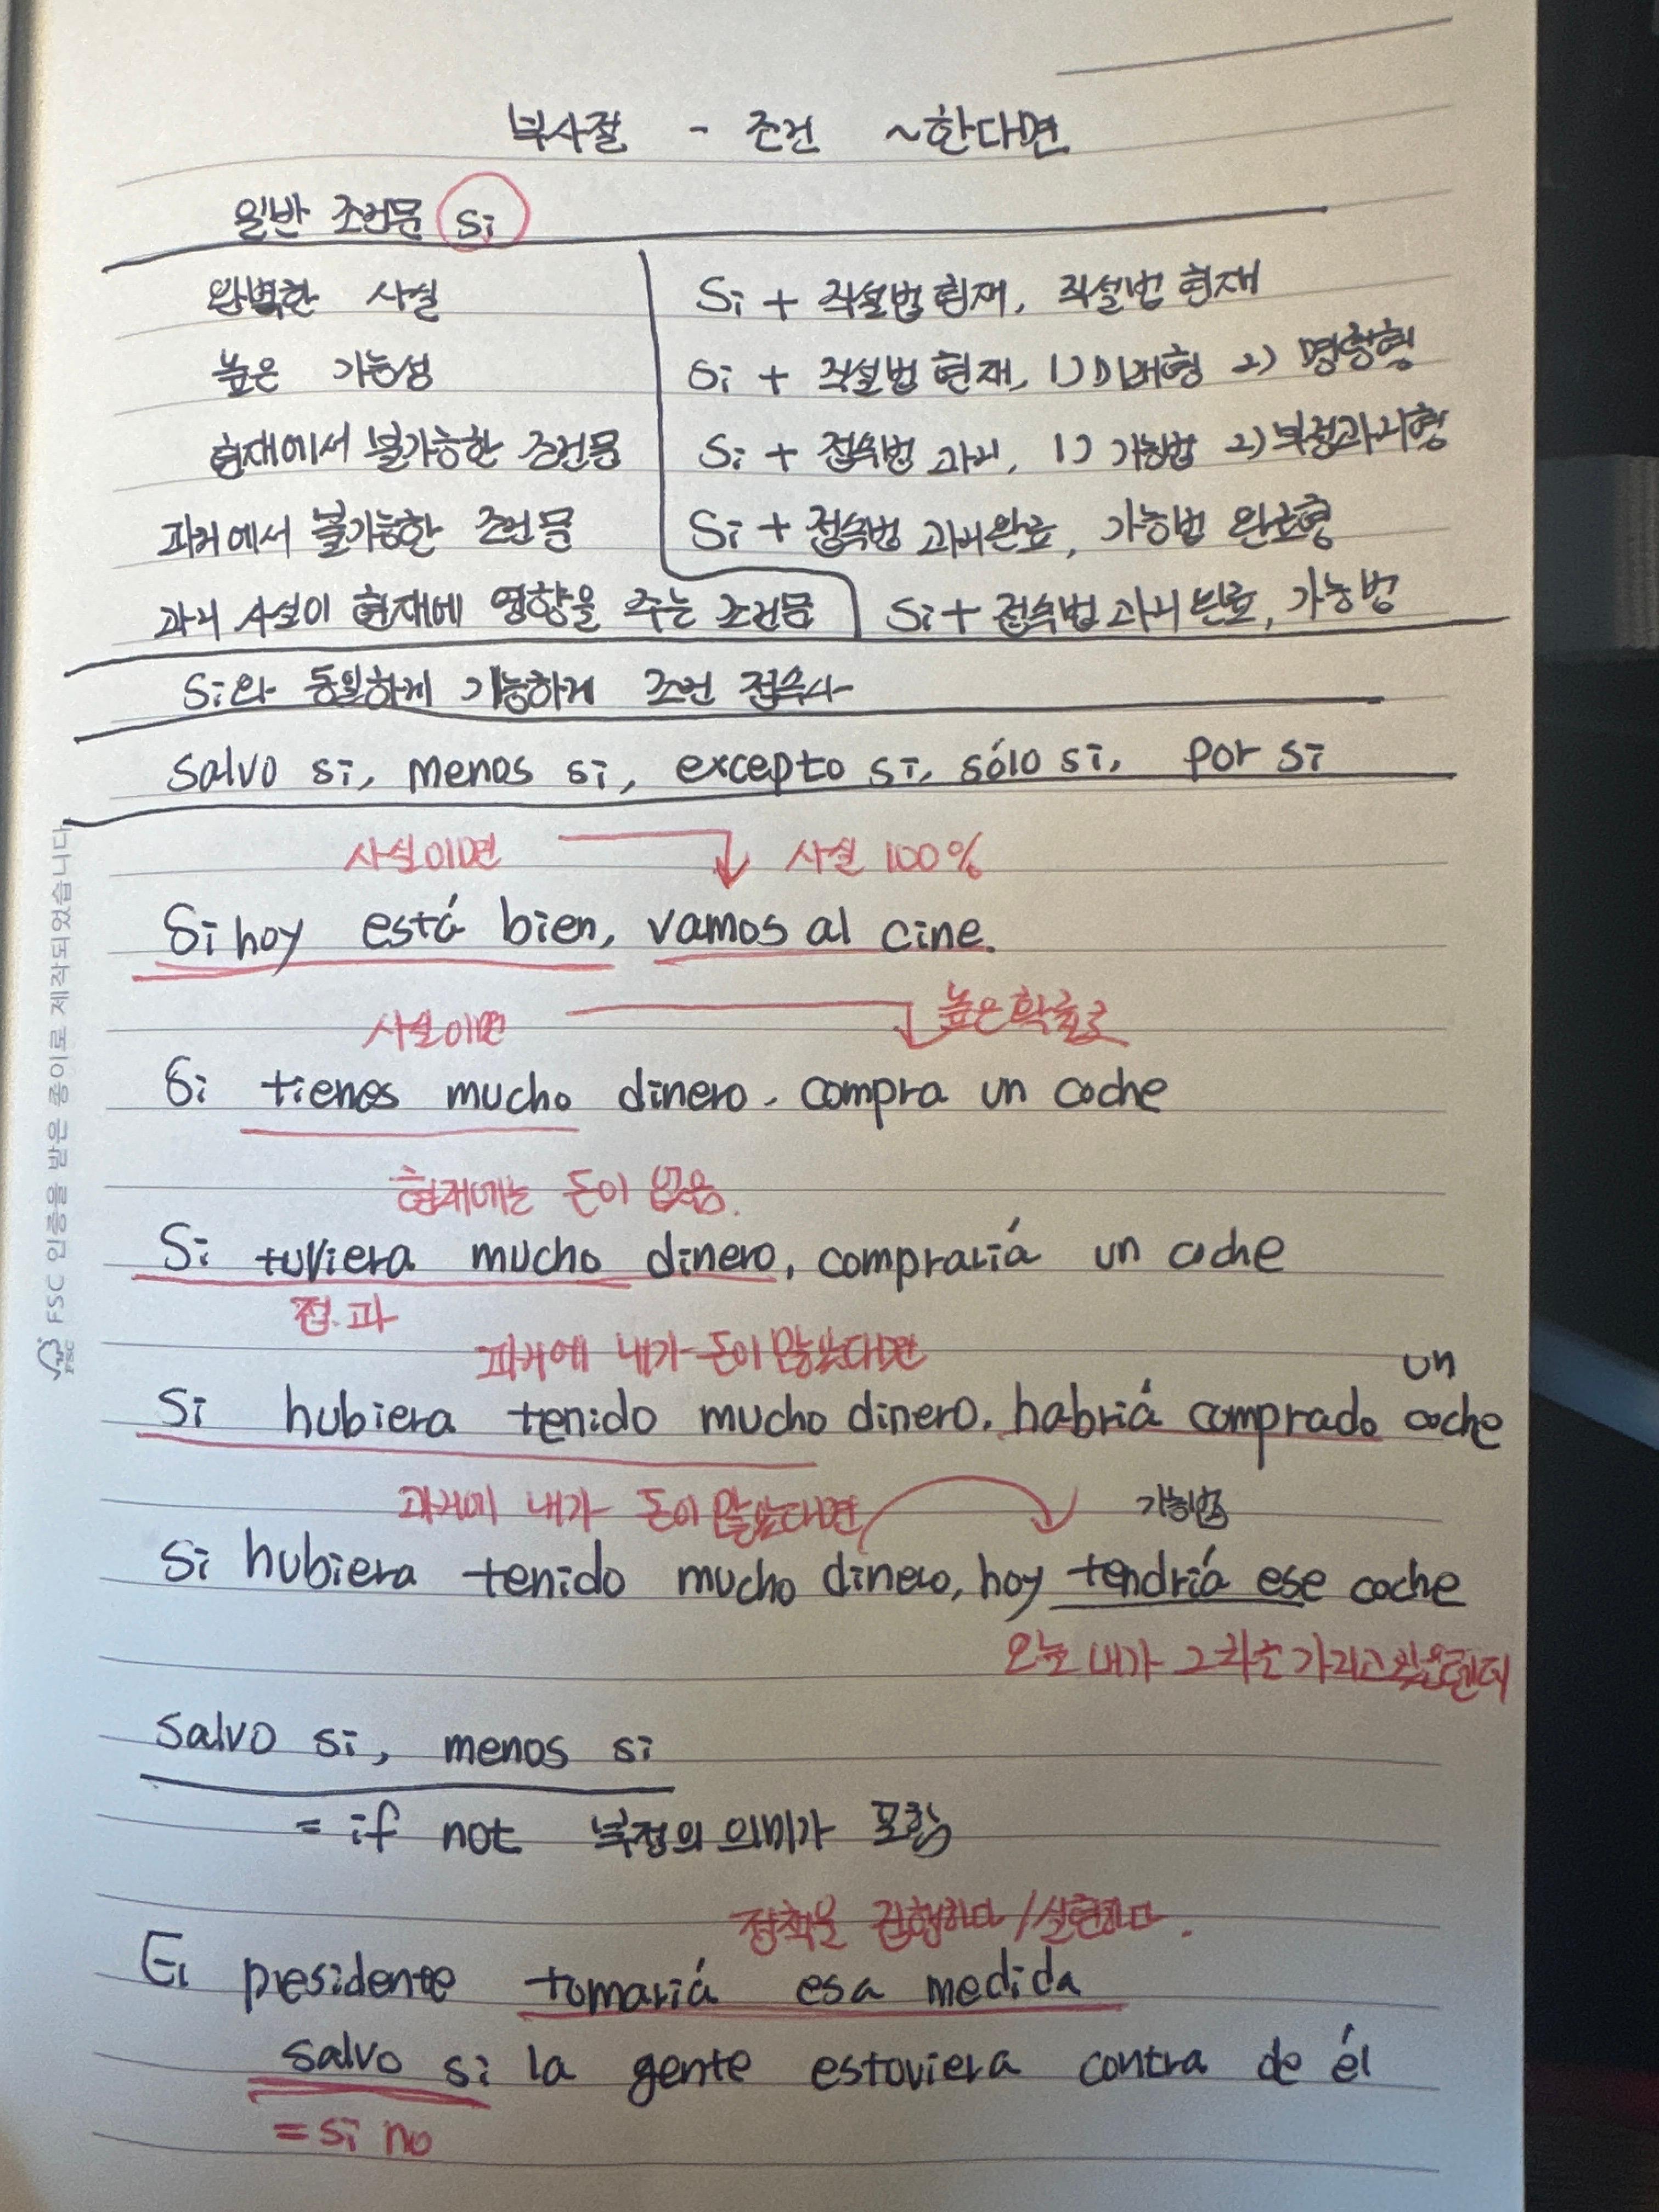 부사절 - 조건 ~한다면
일반 조건문 si
완벽한 사실 Si + 직설법 현재, 직설법 현재
높은 가능성 Si + 직설법 현재, 1) 미래형 2) 명령형
현재에서 불가능한 조건문 Si + 접속법 과거, 1) 가능법 2)
과거에서 불가능한 조건문 Si + 접속법 과거완료, 가능법 완료형
과거 사실이 현재에 영향을 주는 조건문 Si + 접속법 과거완료, 가능법
Si와 동일하게 기능하게 조건 접속사
salvo si, menos si, excepto si, sólo si, por si
사실이면 사실 100%
Si hoy está bien, vamos al cine.
사실이면 높은 확률로
Si tienes mucho dinero, compra un coche
현재에는 돈이 없음.
Si tuviera mucho dinero, compraría un coche
접.과
과거에 내가 돈이 많았다면
un
Si hubiera tenido mucho dinero, habría comprado coche
과거에 내가 돈이 많았다면 가능법
Si hubiera tenido mucho dinero, hoy tendría ese coche
오늘 내가 그 차를 가지고 있을텐데
salvo si, menos si
= if not 부정의 의미가 포함
정책을 집행하다 / 실현하다.
El presidente tomaría esa medida
salvo si la gente estoviera contra de él
= si no
FSC 인증을 받은 종이로 제작되었습니다
FSC